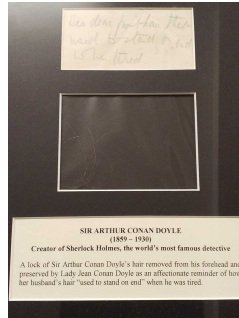 used to stand on end
when he was tired
SIR ARTHUR CONAN DOYLE
(1859 – 1930)
Creator of Sherlock Holmes, the world's most famous detective
A lock of Sir Arthur Conan Doyle's hair removed from his forehead and
preserved by Lady Jean Conan Doyle as an affectionate reminder of how
her husband's hair “used to stand on end” when he was tired.